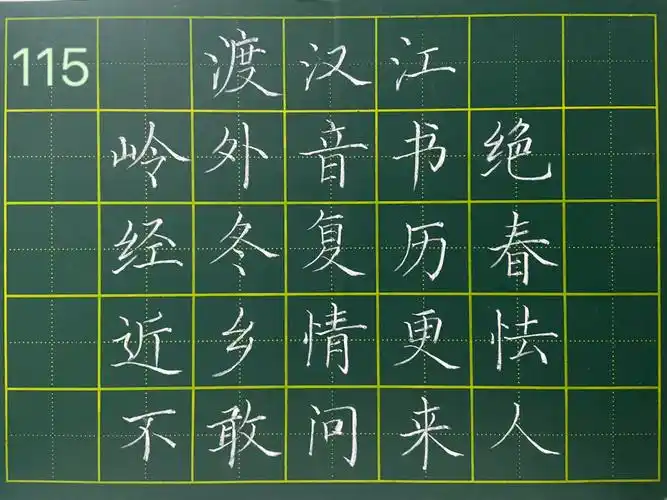 115 渡汉江
岭外音书绝
经冬复历春
近乡情更怯
不敢问来人